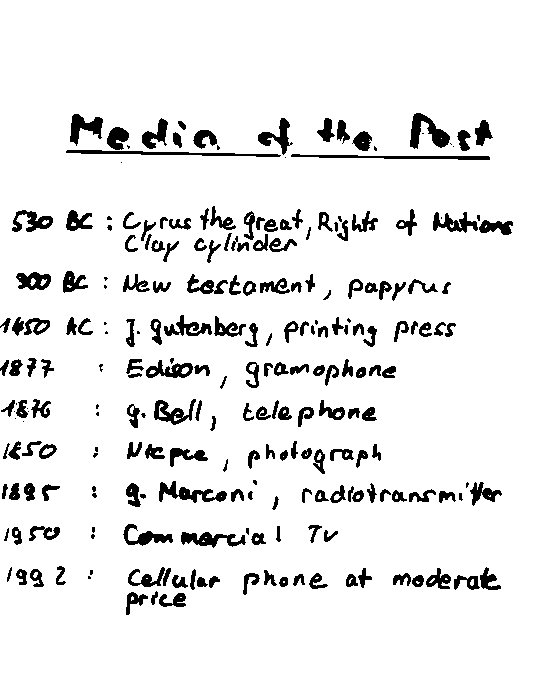 Media of the Past
530 BC : Cyrus the great, Rights of Nations
Clay cylinder
300 BC : New testament, papyrus
1450 AC : J. gutenberg, printing press
1877 : Edison, gramophone
1876 : g. Bell, telephone
1850 : Niepce, photograph
1895 : g. Marconi, radiotransmitter
1950 : Commercial TV
1992 : Cellular phone at moderate
price